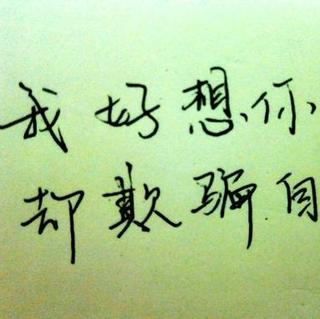 我好想你
却欺骗自